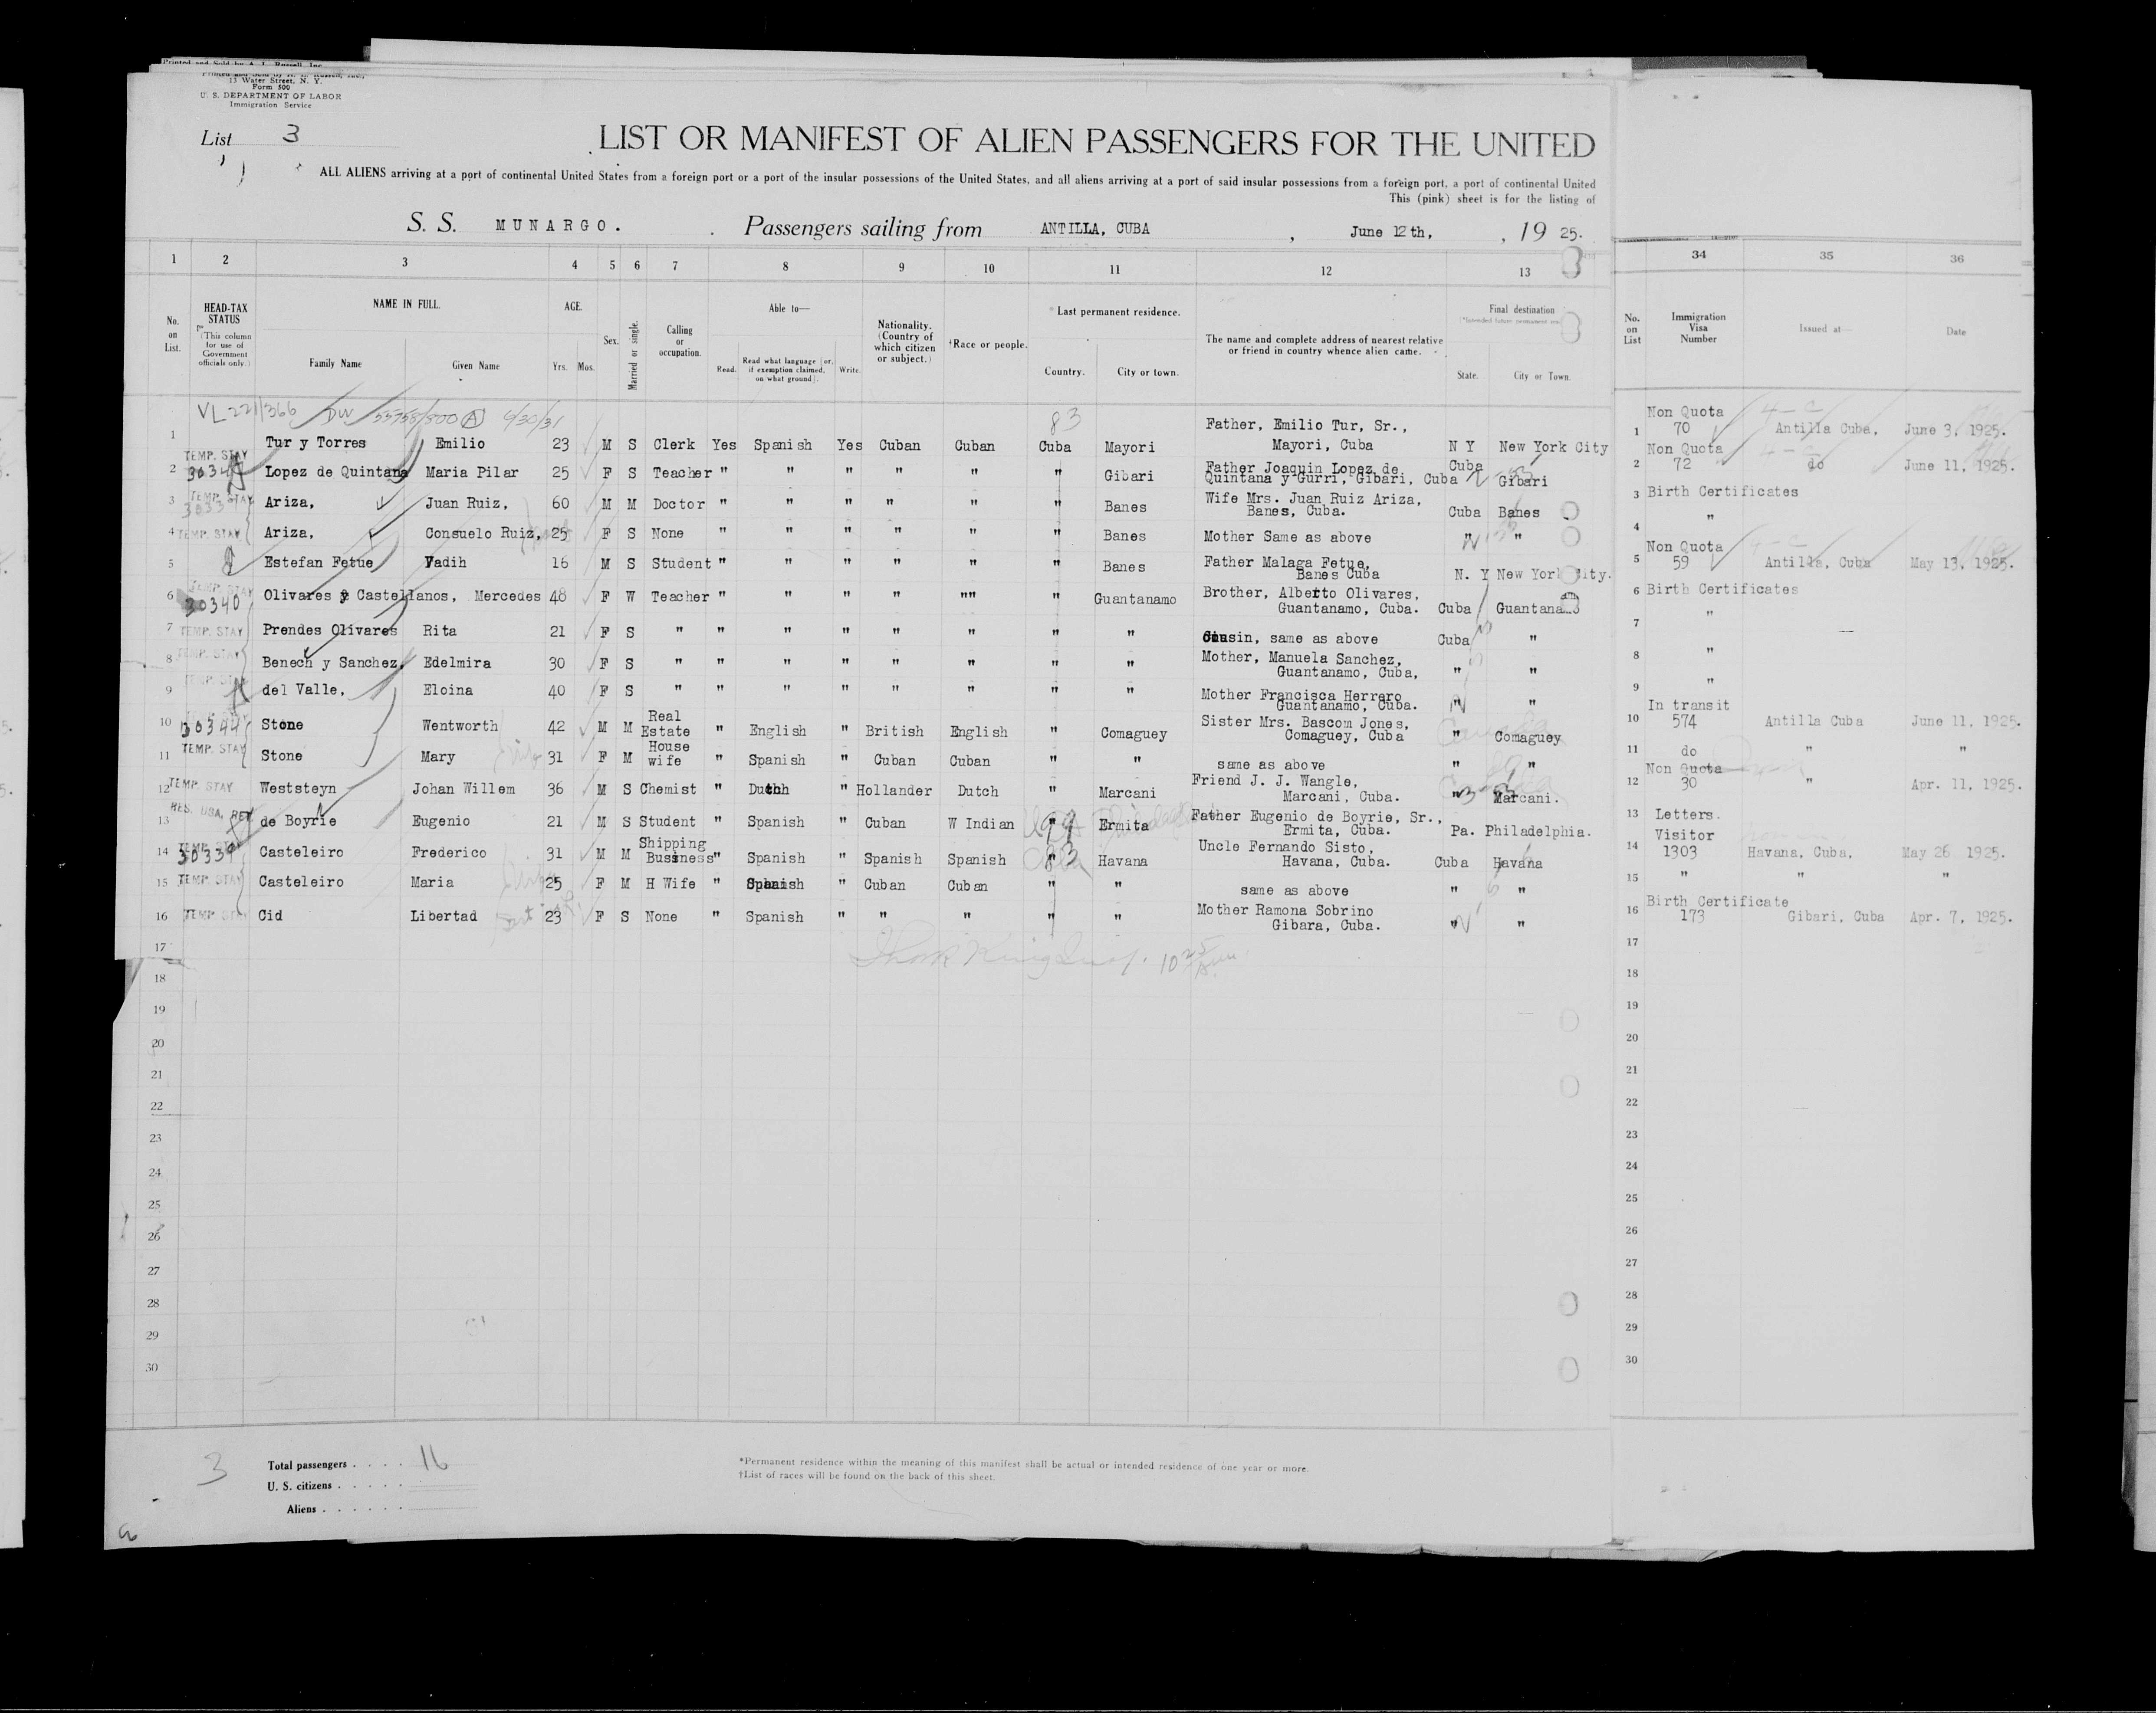 Printed and Sold by A. L. Russell, Inc.
Printed and Sold by A. L. Russell, Inc.,
13 Water Street, N. Y.
Form 500
U. S. DEPARTMENT OF LABOR
Immigration Service
List 3
LIST OR MANIFEST OF ALIEN PASSENGERS FOR THE UNITED
ALL ALIENS arriving at a port of continental United States from a foreign port or a port of the insular possessions of the United States, and all aliens arriving at a port of said insular possessions from a foreign port, a port of continental United
This (pink) sheet is for the listing of
S. S. MUNARGO. Passengers sailing from ANTILLA, CUBA , June 12th, , 19 25.
1 2 3 4 5 6 7 8 9 10 11 12 13 34 35 36
No. on List. HEAD-TAX STATUS (This column for use of Government officials only.) NAME IN FULL. Family Name Given Name AGE. Yrs. Mos. Sex. Married or single. Calling or occupation. Able to— Read. Read what language (or, if exemption claimed, on what ground). Write. Nationality. (Country of which citizen or subject.) †Race or people. *Last permanent residence. Country. City or town. The name and complete address of nearest relative or friend in country whence alien came. Final destination State. City or Town. No. on List Immigration Visa Number Issued at— Date
VL-221/366 DW 55758/800 (A) 4/30/31 83
1 Tur y Torres Emilio 23 M S Clerk Yes Spanish Yes Cuban Cuban Cuba Mayori Father, Emilio Tur, Sr., Mayori, Cuba N Y New York City 1 Non Quota 70 Antilla Cuba, June 3, 1925.
2 TEMP. STAY Lopez de Quintana Maria Pilar 25 F S Teacher " " " " " " Gibari Father Joaquin Lopez de Quintana y Gurri, Gibari, Cuba Cuba Gibari 2 Non Quota 72 do June 11, 1925.
3 TEMP. STAY Ariza, Juan Ruiz, 60 M M Doctor " " " " " " Banes Wife Mrs. Juan Ruiz Ariza, Banes, Cuba. Cuba Banes 3 Birth Certificates
4 TEMP. STAY Ariza, Consuelo Ruiz, 25 F S None " " " " " " Banes Mother Same as above " " 4 "
5 Estefan Fetue Yadih 16 M S Student " " " " " " Banes Father Malaga Fetue, Banes Cuba N. Y New York City. 5 Non Quota 59 Antilla, Cuba May 13, 1925.
6 TEMP. STAY 30340 Olivares y Castellanos, Mercedes 48 F W Teacher " " " " "" " Guantanamo Brother, Alberto Olivares, Guantanamo, Cuba. Cuba Guantanamo 6 Birth Certificates
7 TEMP. STAY Prendes Olivares Rita 21 F S " " " " " " " " Cousin, same as above Cuba " 7 "
8 TEMP. STAY Benech y Sanchez, Edelmira 30 F S " " " " " " " " Mother, Manuela Sanchez, Guantanamo, Cuba, " " 8 "
9 TEMP. STAY del Valle, Eloina 40 F S " " " " " " " " Mother Francisca Herrero Guantanamo, Cuba. " " 9 "
10 30344 Stone Wentworth 42 M M Real Estate " English " British English " Comaguey Sister Mrs. Bascom Jones, Comaguey, Cuba " Comaguey 10 In transit 574 Antilla Cuba June 11, 1925.
11 TEMP. STAY Stone Mary 31 F M House wife " Spanish " Cuban Cuban " " same as above " " 11 do " "
12 TEMP. STAY Weststeyn Johan Willem 36 M S Chemist " Dutch " Hollander Dutch " Marcani Friend J. J. Wangle, Marcani, Cuba. " Marcani. 12 Non Quota 30 " Apr. 11, 1925.
13 RES. USA, RET. de Boyrie Eugenio 21 M S Student " Spanish " Cuban W Indian " 99 Ermita Father Eugenio de Boyrie, Sr., Ermita, Cuba. Pa. Philadelphia. 13 Letters.
14 TEMP. STAY 30339 Casteleiro Frederico 31 M M Shipping Business " Spanish " Spanish Spanish " 83 Havana Uncle Fernando Sisto, Havana, Cuba. Cuba Havana 14 Visitor 1303 Havana, Cuba, May 26 1925.
15 TEMP. STAY Casteleiro Maria 25 F M H Wife " Spanish " Cuban Cuban " " same as above " " 15 " " "
16 TEMP. STAY Cid Libertad 23 F S None " Spanish " " " " " Mother Ramona Sobrino Gibara, Cuba. " " 16 Birth Certificate 173 Gibari, Cuba Apr. 7, 1925.
17 17
18 18
19 19
20 20
21 21
22 22
23 23
24 24
25 25
26 26
27 27
28 28
29 29
30 30
3
Total passengers . . . . 16
U. S. citizens . . . . .
Aliens . . . . . .
*Permanent residence within the meaning of this manifest shall be actual or intended residence of one year or more.
†List of races will be found on the back of this sheet.